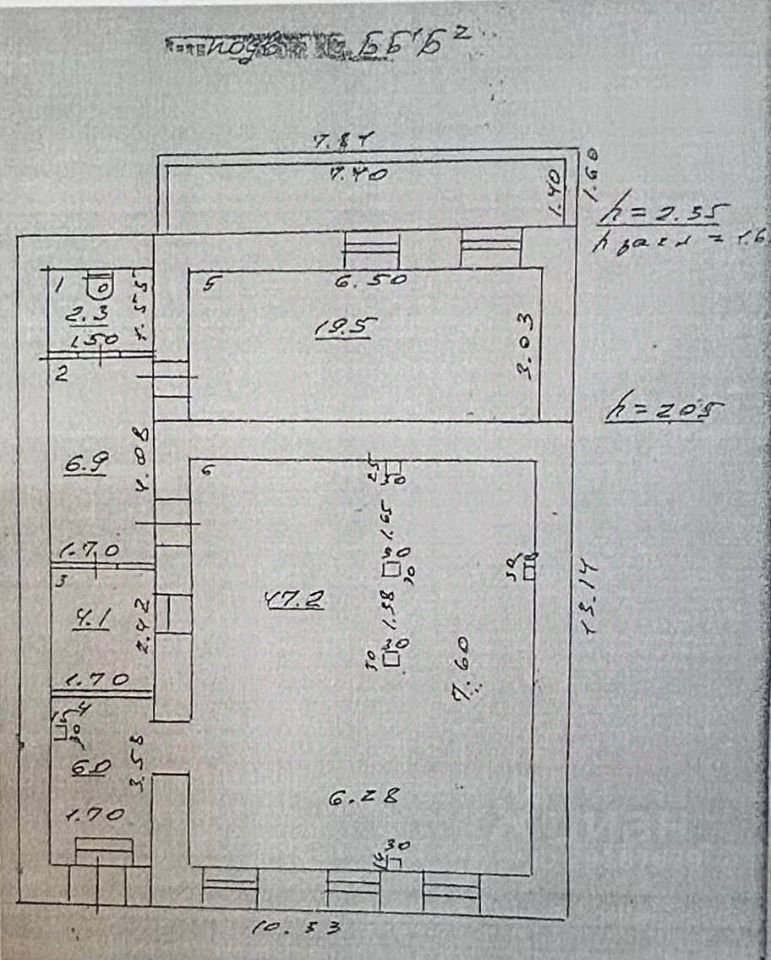 ББ'Б²
7.81
7.40
1.40
1.60
h = 2.35
h = 2.05
1
2.3
1.50
1.55
5
6.50
19.5
3.03
2
6.9
4.08
1.70
3
4.1
2.42
1.70
4
15
30
6.0
3.58
1.70
6
25
30
1.65
30
30
1.38
30
30
47.2
7.60
6.28
30
13.14
10.33